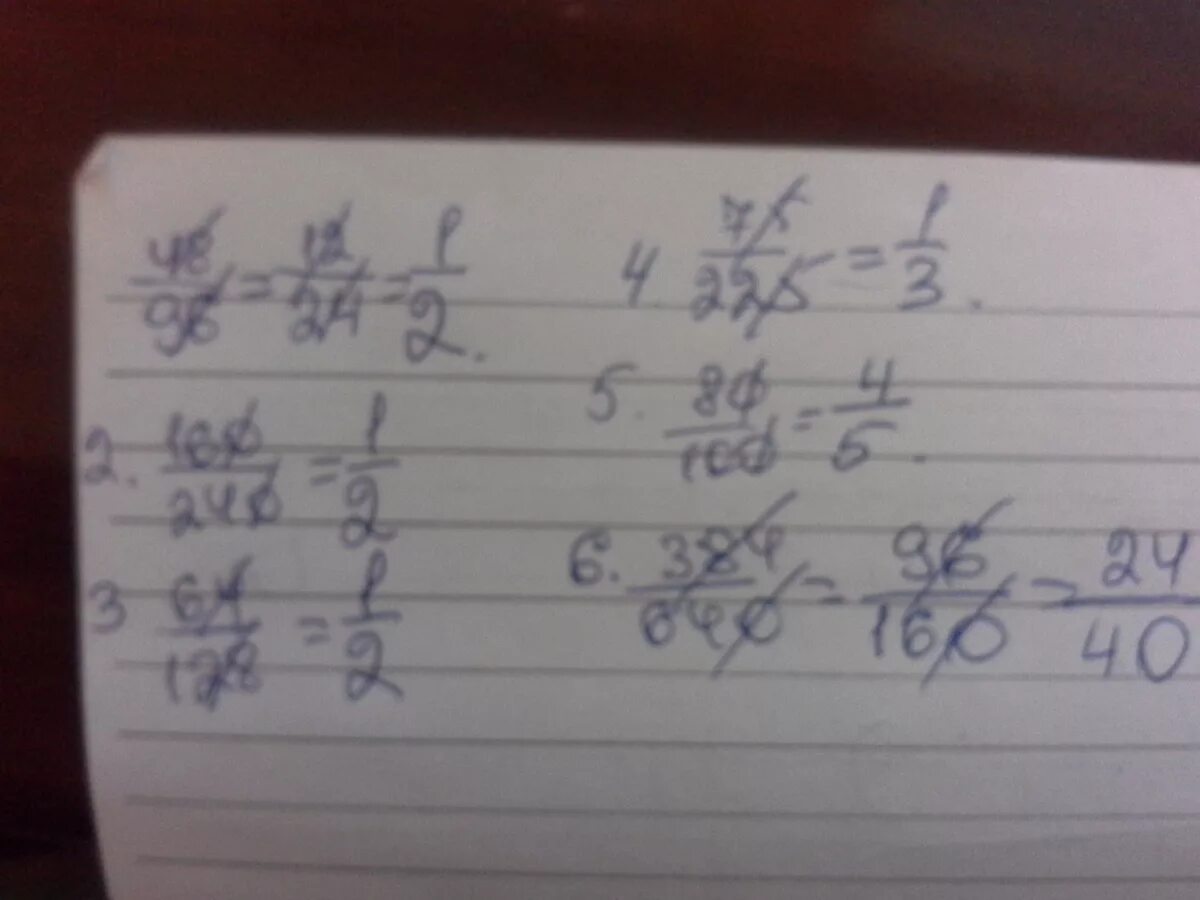 48/96 = 12/24 = 1/2.
2. 160/240 = 1/2
3 64/128 = 1/2
4 75/225 = 1/3.
5. 80/100 = 4/5.
6. 384/640 = 96/160 = 24/40